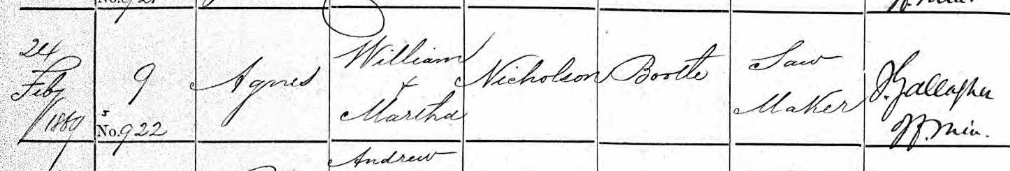 24
Feb
1869
9
No.922
Agnes
William
+
Martha
Nicholson
Bootle
Saw
Maker
J. Gallagher
Off. Min.
Andrew